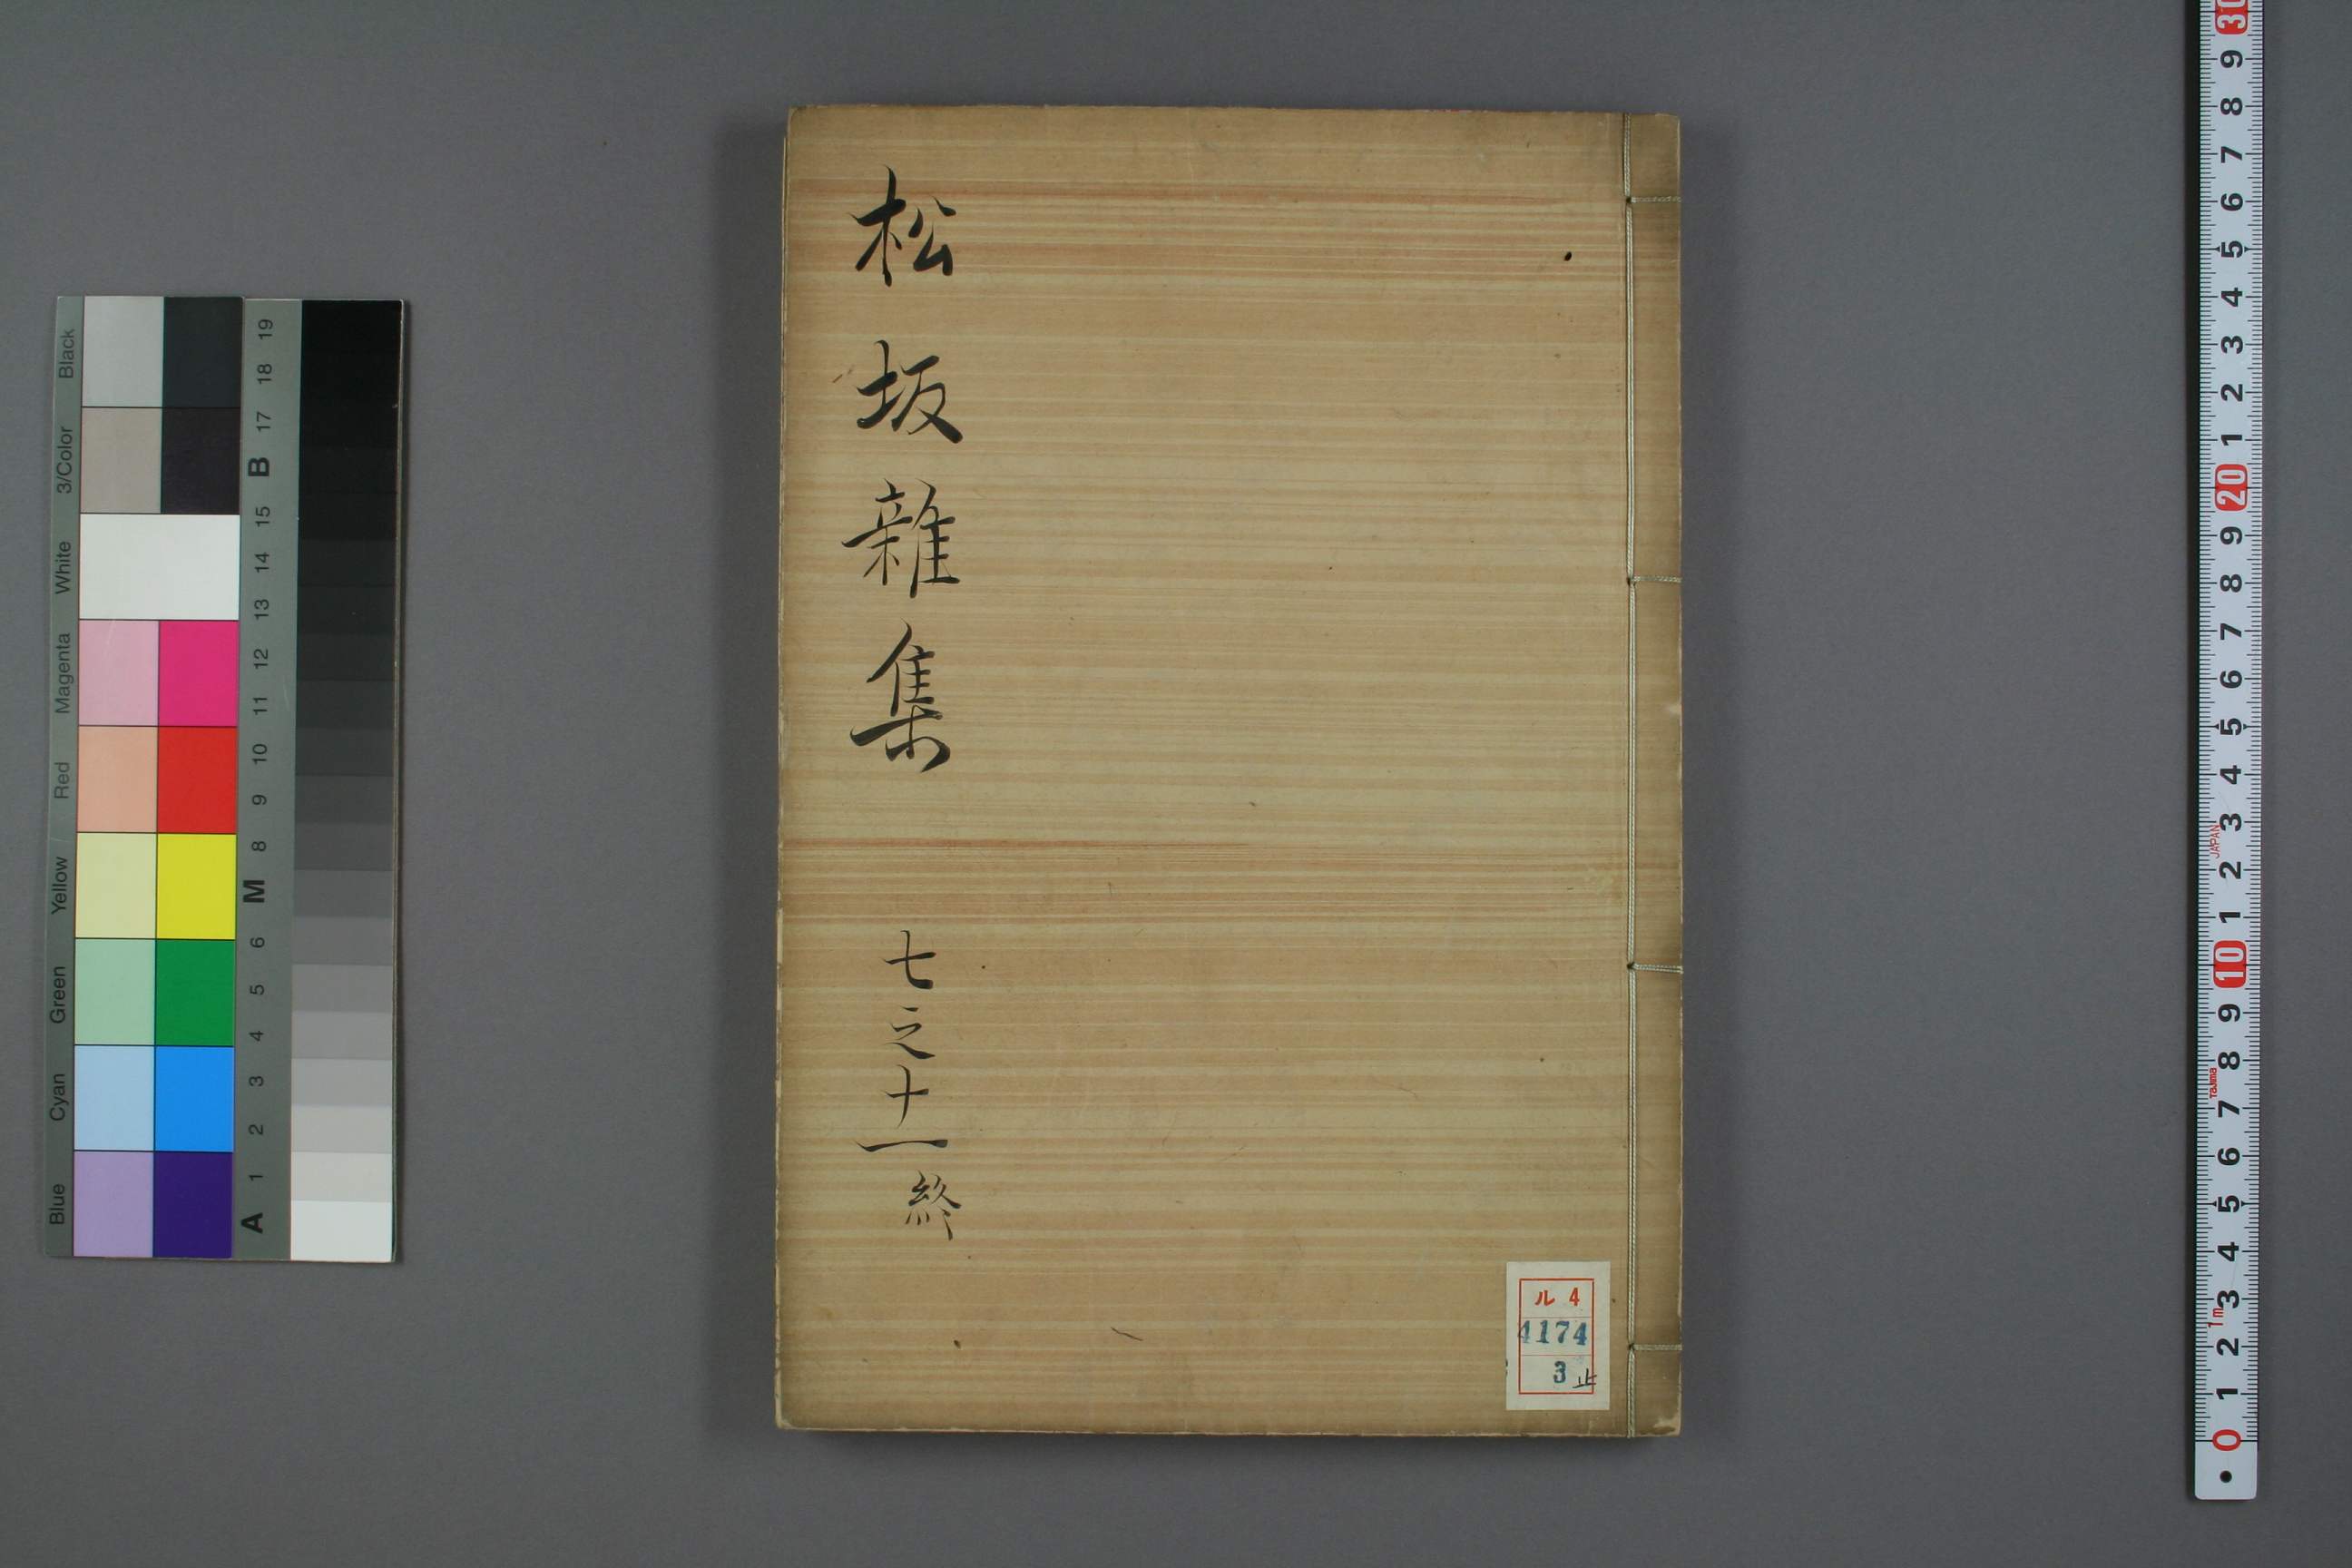 松坂雜集 七之十一終
ル 4
4174
3 止
Black
3/Color
White
Magenta
Red
Yellow
Green
Cyan
Blue
19
18
17
B
15
14
13
12
11
10
9
8
M
6
5
4
3
2
1
A
30
9
8
7
6
5
4
3
2
1
20
9
8
7
6
5
4
3
JAPAN
2
1
10
9
8
Tajima
7
6
5
4
3
1m
2
1
0